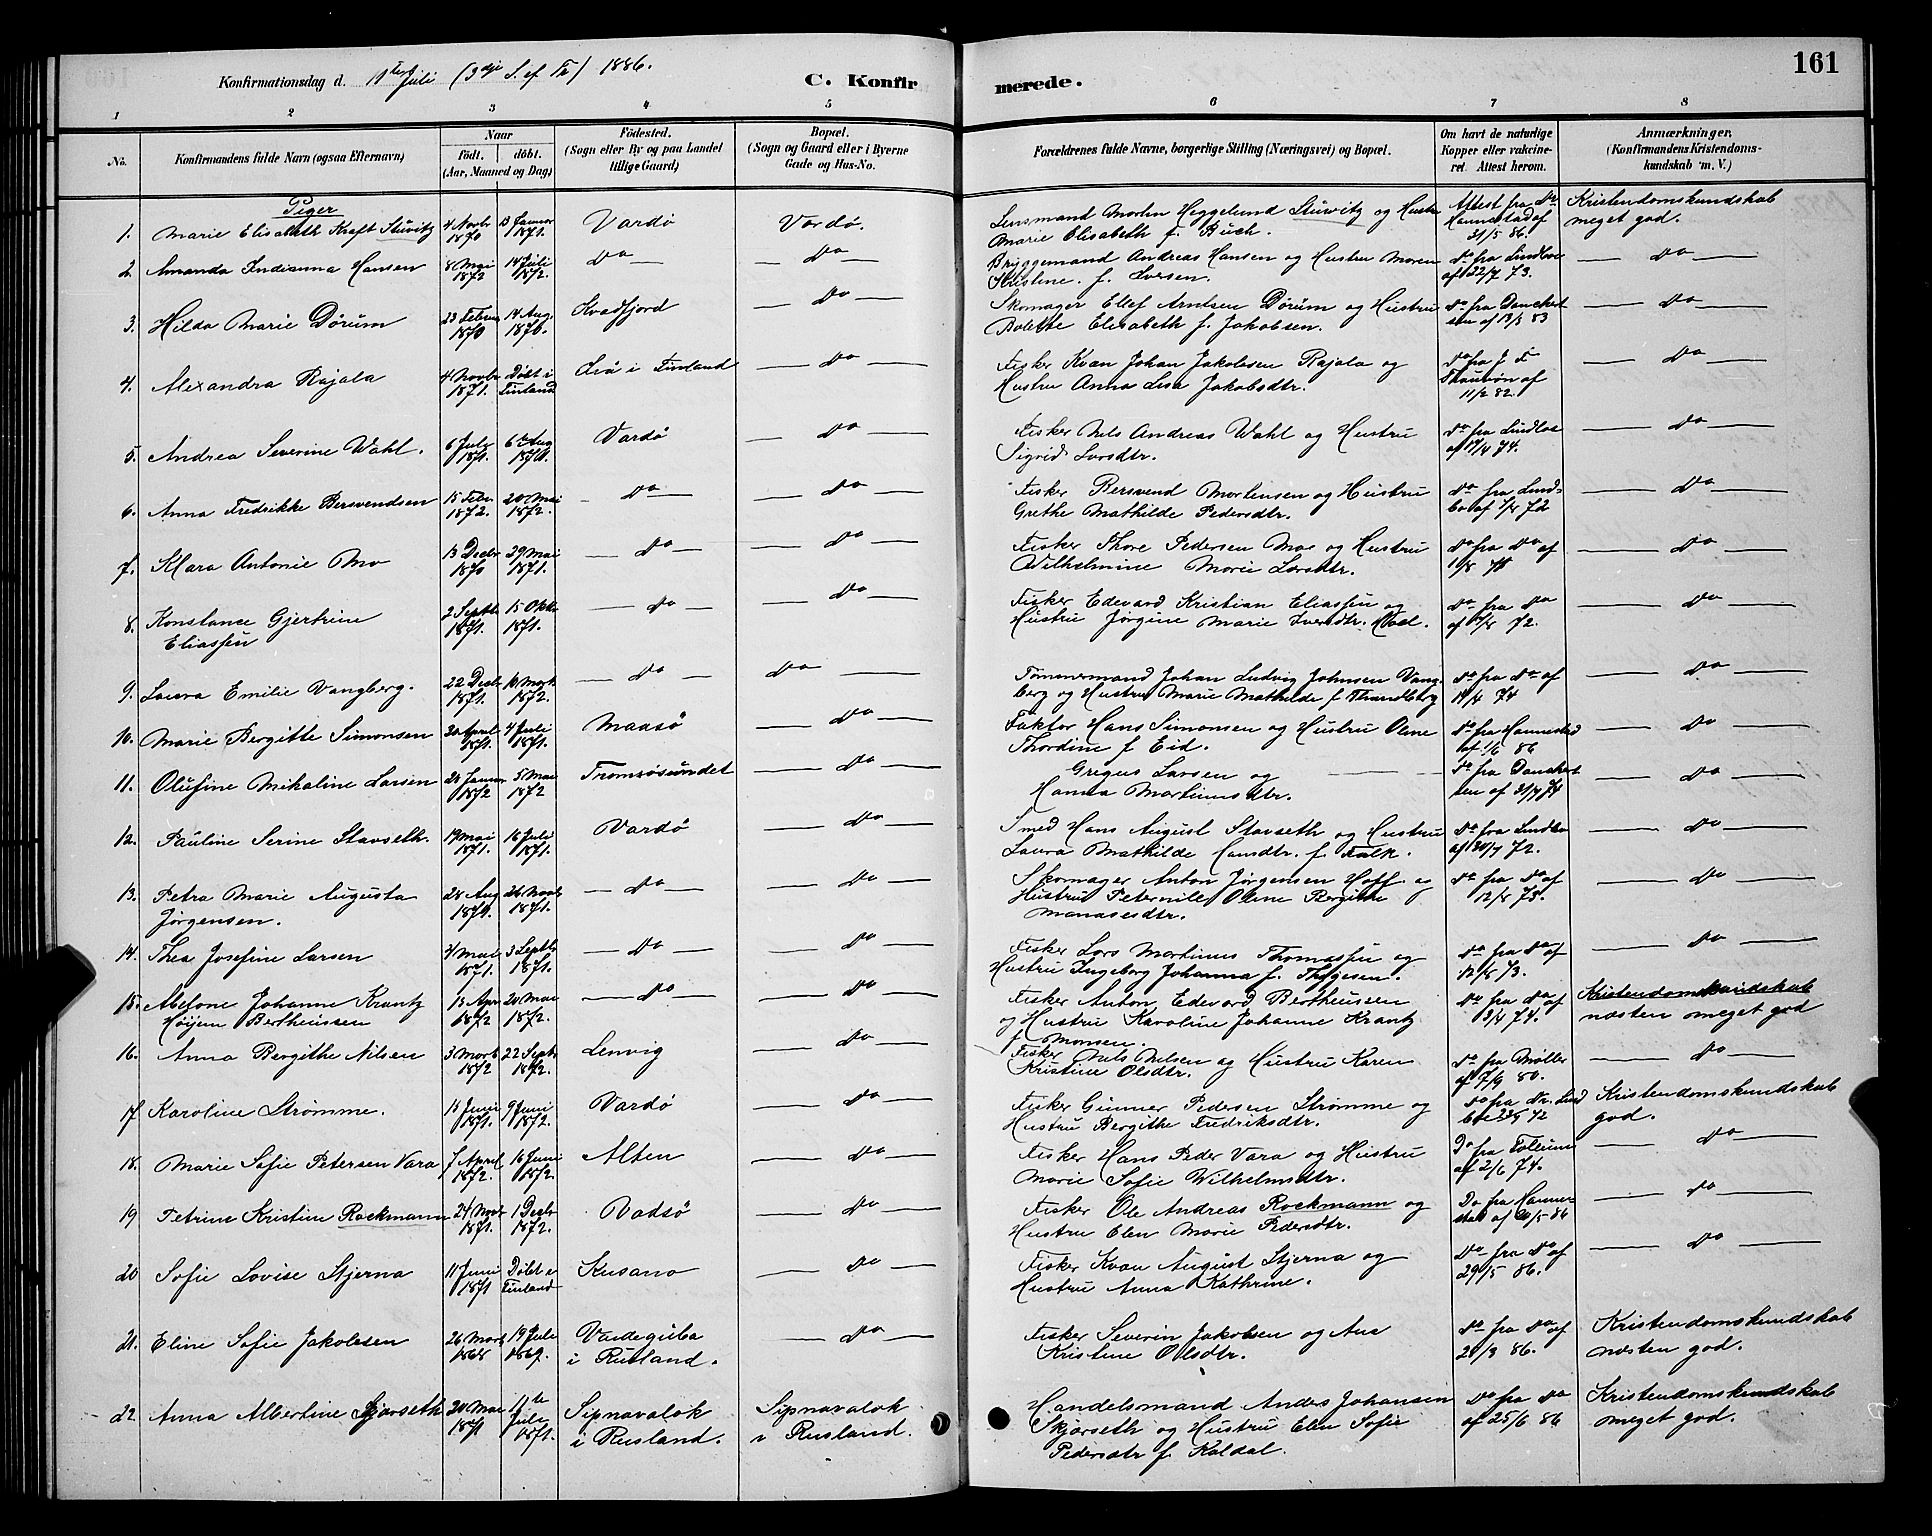 161
Konfirmationsdag d. 11te Juli (3die S. ef Tr) 1886.
C. Konfirmerede.
1 2 3 4 5 6 7 8
No.
Konfirmandens fulde Navn (ogsaa Efternavn)
Naar
födt. döbt.
(Aar, Maaned og Dag)
Födested.
(Sogn eller By og paa Landet
tillige Gaard)
Bopæl.
(Sogn og Gaard eller i Byerne
Gade og Hus-No.
Forældrenes fulde Navne, borgerlige Stilling (Næringsvei) og Bopæl.
Om havt de naturlige
Kopper eller vakcine-
ret. Attest herom.
Anmærkninger,
(Konfirmandens Kristendoms-
kundskab m. V.)
Piger
1. Marie Elisabeth Kraft Stuwitz 4 Novbr 1870 13 Januar 1871. Vardö Vardö. Lensmand Morten Heggelund Stuwitz og Hustru
Marie Elisabeth f. Buch. Attest fra Dr Hannestad af 31/5 86. Kristendomskundskab meget god.
2. Amanda Indianna Hansen 8 Mai 1872 14 Juli 1872. do do Bryggemand Andreas Hansen og Hustru Maren
Kristine f. Iversen. do fra Lindboe af 22/7 73. do
3. Hilda Marie Dörum 23 Februar 1870 14 Aug. 1870. Kvædfjord do Skomager Ellef Arntsen Dörum og Hustru
Bolette Elisabeth f. Jakobsen. do fra Danchertsen af 13/3 83 do
4. Alexandra Rajala 4 Novbr 1871. Döbt i Finland i Finland do Fisker Kvæn Johan Jakobsen Rajala og
Hustru Anna Lisa Jakobsdtr. do fra J. F. af 11/2 82. do
5. Andrea Severine Wahl. 6 Juli 1871. 6te Aug 1871. Vardö do Fisker Nils Andreas Wahl og Hustru
Sigrid Larsdtr. do fra Lindboe af 17/4 74. do
6. Anna Fredrikke Bersvendsen 15 Febr 1872. 20 Mai 1872. do do Fisker Bersvend Mortensen og Hustru
Grethe Mathilde Pedersdtr. do fra Lindboe af 7/8 72 do
7. Klara Antonie Mo 13 Decbr 1870 29 Mai 1871. do do Fisker Thore Pedersen Moe og Hustru
Vilhelmine Marie Larsdtr. do fra do af do
8. Konstance Gjertrine
Eliassen 2 Septbr 1871. 15 Oktr 1871. do do Fisker Edevard Kristian Eliassen og
Hustru Jörgine Marie Iversdtr. do fra do af 72. do
9. Laura Emilie Vangberg. 22 Decbr 1871. 10 Marts 1872. do do Tömmermand Johan Ludvig Johnsen Vang-
berg og Hustru Marie Mathilde f. Strandberg do fra do af 74 do
10. Marie Bergitte Simonsen 30 April 1871. 4 Juli 1871. Maasö do Faktor Hans Simonsen og Hustru Oline
Thordine f. Eid. do fra Hannestad af 1/6 86 do
11. Olufine Mikaline Larsen 28 Januar 1872 5 Mai 1872 Tromsösundet do Gregus Larsen og
Hanna Martinusdtr. do fra Danchertsen af 31/7 74 do
12. Pauline Serine Stavseth. 19 Mai 1871. 16 Juli 1871. Vardö do Smed Hans August Stavseth og Hustru
Laura Mathilde Hansdtr. f. Falk. do fra Lindboe af 30/7 72. do
13. Petra Marie Augusta
Jörgensen. 28 Aug 1871. 26 Novbr 1871. do do Skomager Anton Jörgensen Hoff og
Hustru Peternille Oline Bergitte
Manassesdtr. do fra do af 12/8 75. do
14. Thea Josefine Larsen 4 Mai 1871. 3 Septbr 1871. do do Fisker Lars Martinus Thomassen og
Hustru Ingeborg Johanna f. Thygesen. do fra do af 12/8 73. do
15. Abelone Johanne Krantz
Höijem Bertheussen 13 Apr 1872 20 Mai 1872. do do Fisker Anton Edevard Bertheussen
og Hustru Karoline Johanne Krantz
f. Monsen. do fra do af 74. Kristendomskundskab næsten meget god
16. Anna Bergithe Nilsen 3 Marts 1872 22 Septr 1872. Lenvig do Fisker Nils Nilsen og Hustru Karen
Kristine Olsdtr. do fra Möller af 7/9 80. do
17. Karoline Strömme. 15 Juni 1871. 9 Juni 1872. Vardö do Fisker Gunner Pedersen Strömme og
Hustru Bergithe Fredriksdtr. do fra Dr. Lindboe 72 Kristendomskundskab god.
18. Marie Sofie Petersen Vara 7 April 1872. 16 Juni 1872. Alten do Fisker Hans Peder Vara og Hustru
Marie Sofie Wilhelmsdtr. Do fra af 2/6 74. do
19 Petrine Kristine Rockmann 24 Novbr 1871. 1 Decbr 1872. Vadsö do Fisker Ole Andreas Rockmann og
Hustru Elen Marie Pedersdtr. Do fra Hannestad af 20/5 86 do
20 Sofie Lovise Stjerna 11 Juni 1871 Döbt i Finland Kusano do Fisker Kvæn August Stjerna og
Hustru Anna Kathrine. Do fra do af 29/5 86. do
21. Eline Sofie Jakobsen 26 Marts 1868 19 Juli 1869. Vaideguba
i Rusland. do Fisker Severin Jakobsen og Ane
Kristine Olsdtr. do fra do af 28/3 86. Kristendomskundskab næsten god.
22. Anna Albertine Skjærseth 20 Mai 1871 11te Juli 1871. Sipnavalok
i Rusland. Sipnavalok
i Rusland. Handelsmand Anders Johansen
Skjærseth og Hustru Elen Sofie
Pedersdtr f. Kaldal. do fra do af 25/6 86 Kristendomskundskab meget god.